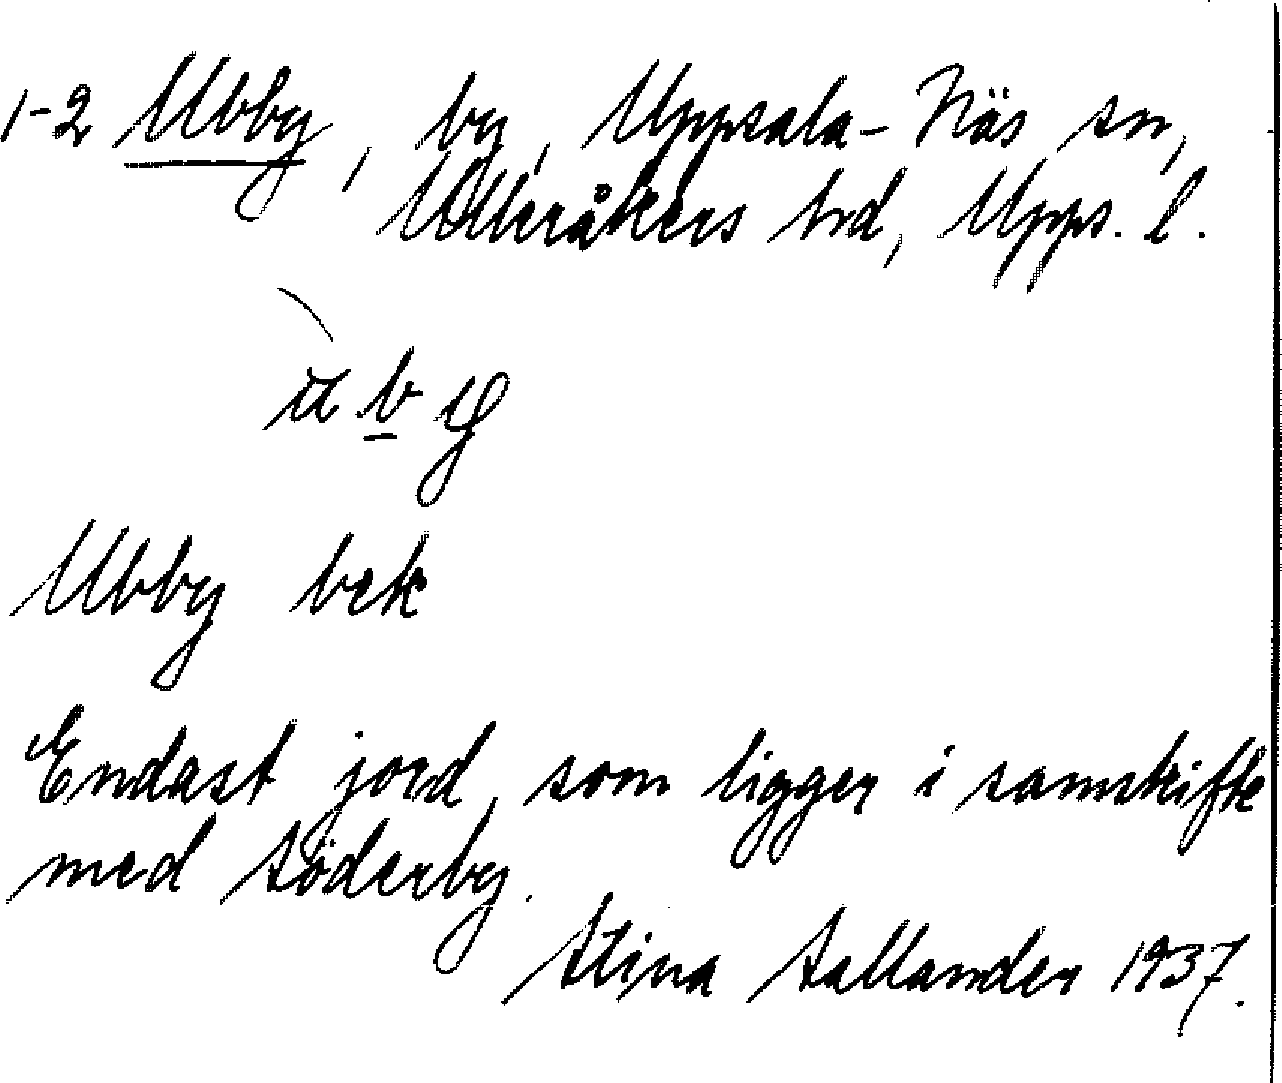 1-2 Ubby, by, Uppsala-Näs sn,
Ulleråkers hrd, Upps. l.
Ubby bek
Endast jord, som ligger i samskifte
med Söderby.
Stina Sallander 1937.